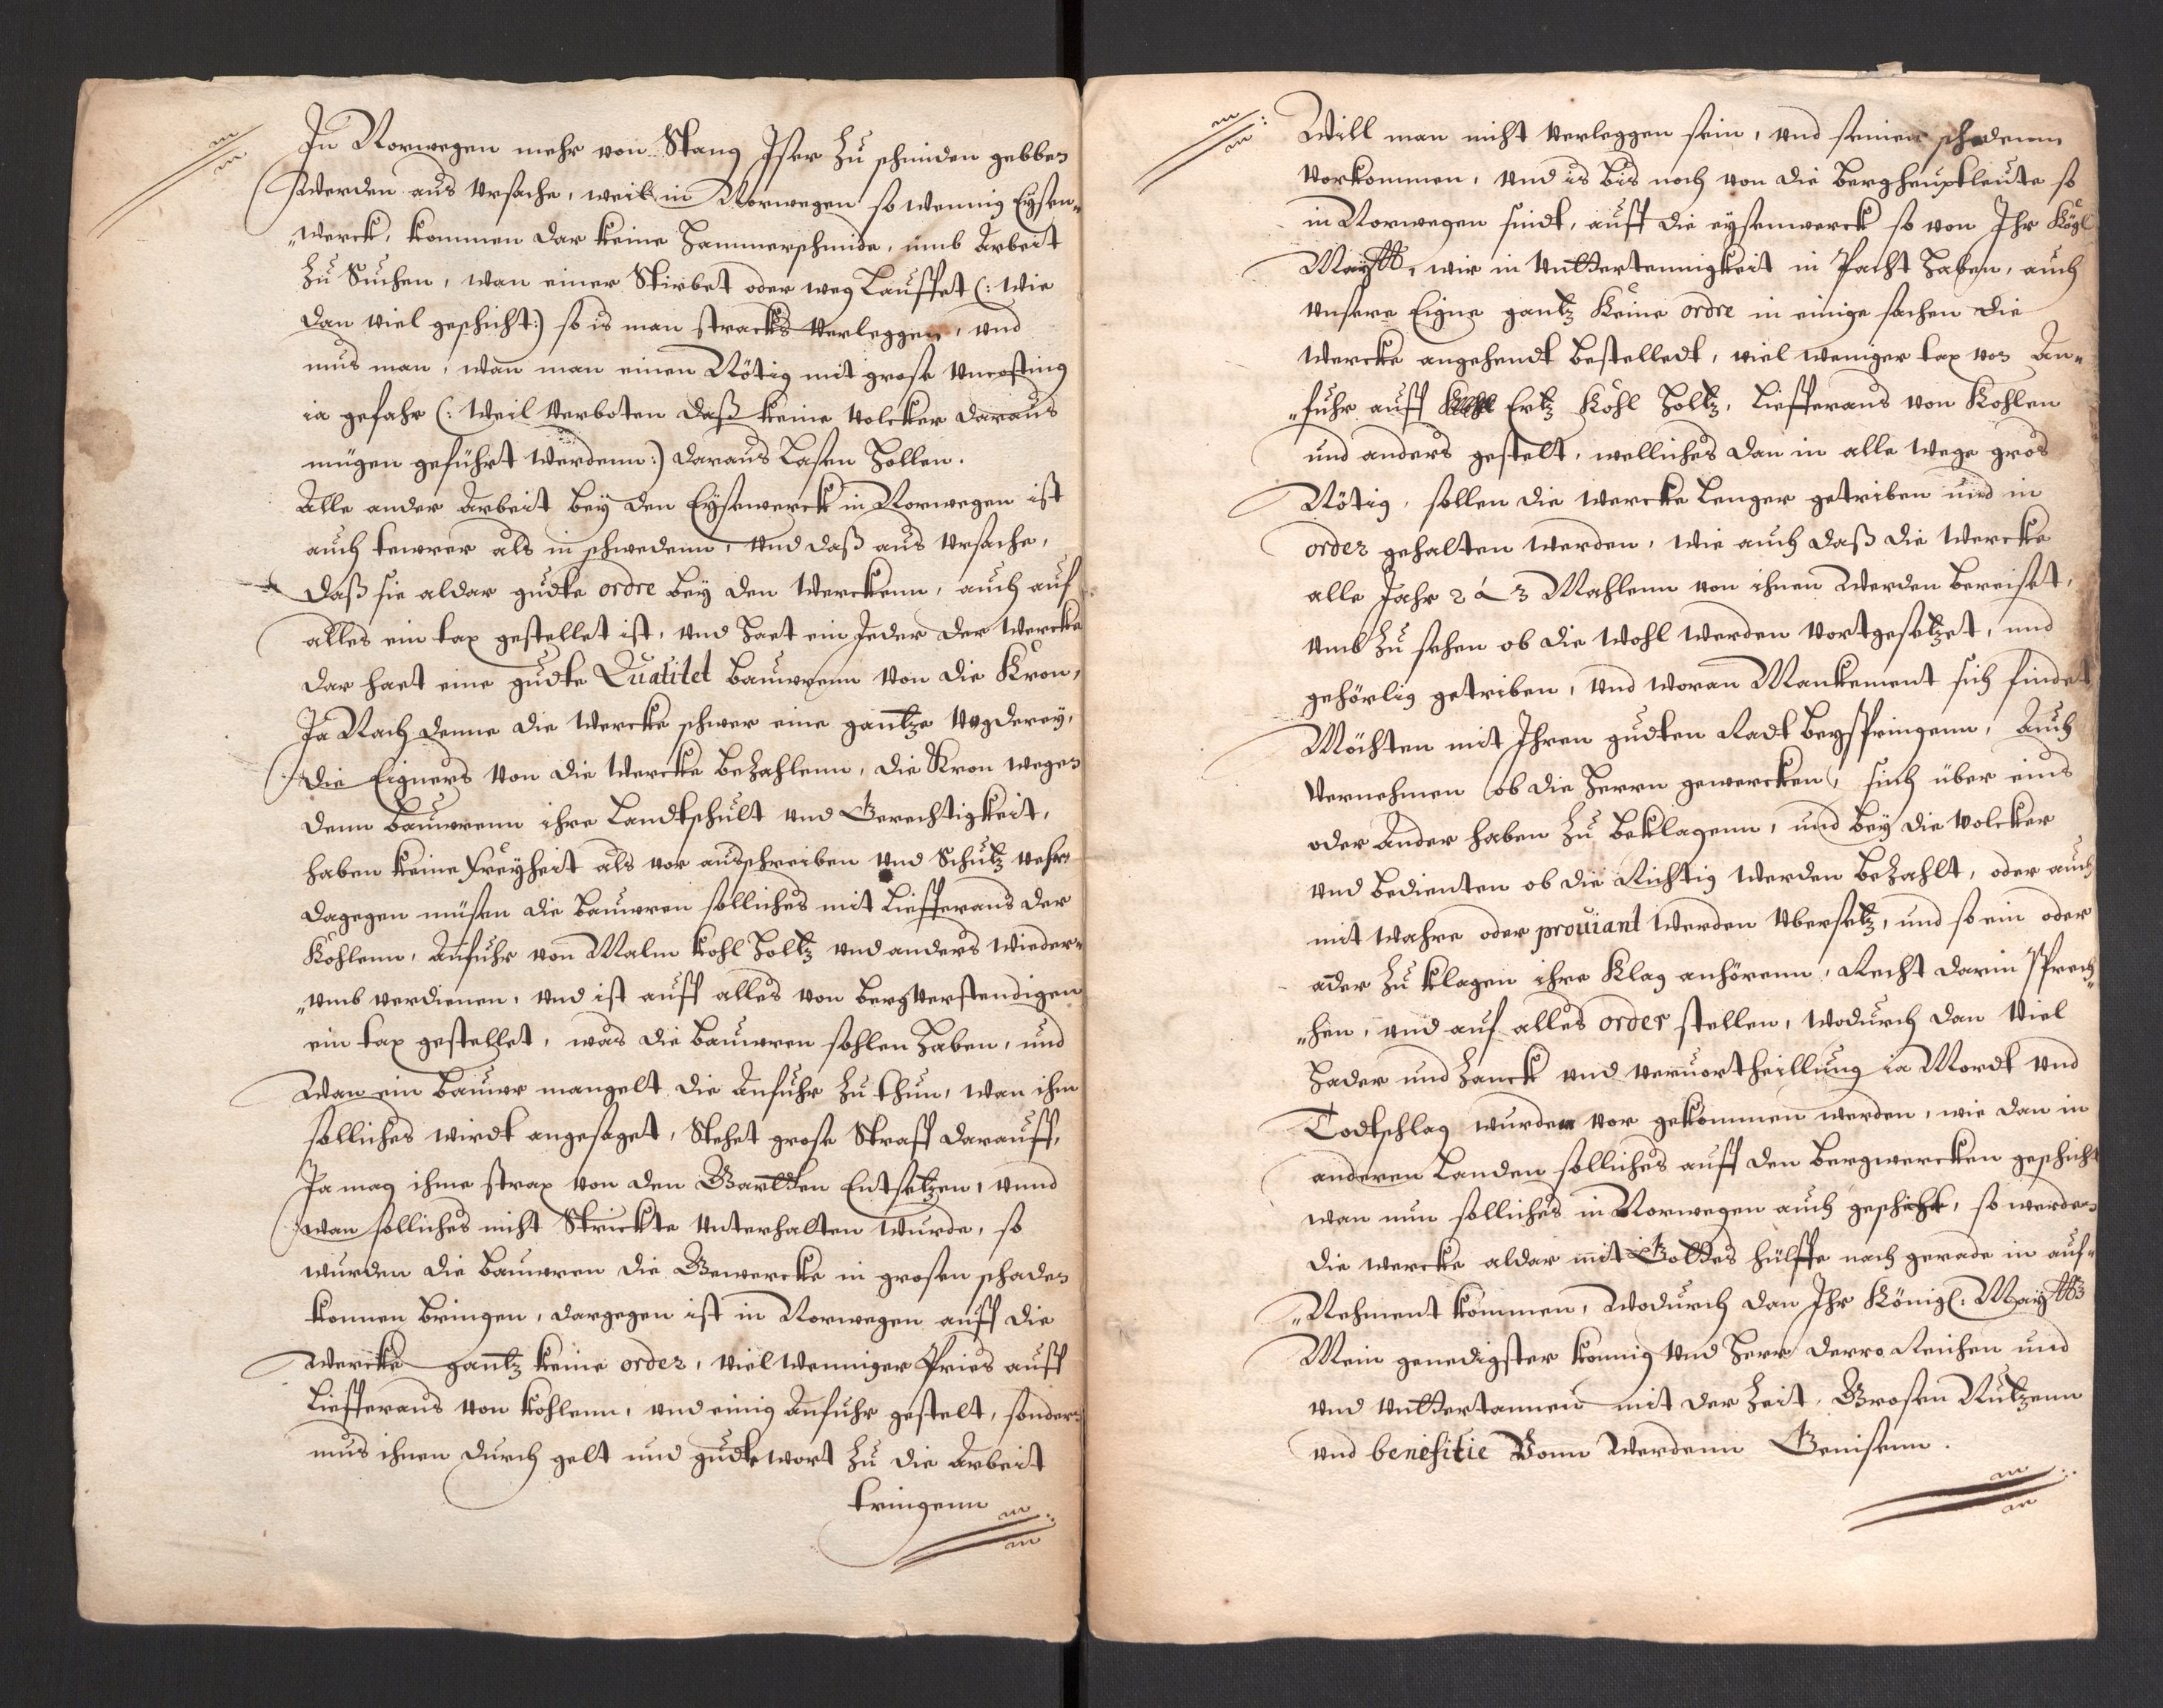 In Norwegen mehr von Stang Iser zu schmiden gebben
werden aus Ursache, weil in Norwegen so wennig Eysen„
„werck, kommen dar keine Hammerschmide, umb Arbeit
zu Suchen, wan einer Stirbet oder weg Lauffet (: wie
dan viel geschicht:) so is man stracks verleggen, und
mus man, wan man einen Nötig mit grose uncosting
ia gefahr (: weil verboten daß keine volcker daraus
mügen geführt werdenn:) daraus Lasen Hollen.
Alle ander Arbeit bey den Eysenwerck in Norwegen ist
auch tewrer als in schwedenn, und daß aus Ursache,
daß sie aldar gudte ordre bey den Werckenn, auch auf
alles ein tax gestellet ist, und Haet ein Jeder der Wercke
dar haet eine gudte Quatitet Bauwrenn von die Kron,
Ja Nach denne die Wercke schwer eine gantze Vogderey,
die Eigners von die Wercke bezahlenn, die Kron wegen
denn Bauwrenn ihre Landtschult und Gerechtigkeit,
haben keine Freyheit als vor ausschreiben und Schutz
dagegen müsen die Bauwren solliches mit Liefferans der
Kohlenn, Anfuhr von Malm kohl Holtz und anders wieder„
„umb verdienen, und ist auff alles von Bergverstendigen
ein tax gestellet, was die Bauwren sohlen Haben, und
Wan ein Bauwr mangelt die Anfuhr zu thun, wan ihm
solliches wirdt angesaget, Stehet grose Straff darauff,
Ja mag ihme strax von den Entsetzen, unnd
wan solliches nicht Strickte unterhalten wurde, so
wurden die Bauwren die Gewercke in grosen schaden
konnen bringen, dargegen ist in Norwegen auff die
Wercke gantz keine order, viel wenniger Pries auff
Liefferans von kohlenn, und einig Anfuhr gestelt, sondern
mus ihnen durch gelt und gudte wort zu die Arbeit
bringenn
Will man nicht verleggen sein, und seinen schadenn
vorkommen, und is bis noch von die Bergheuptleute so
in Norwegen sindt, auff die eysenwerck so von Ihr Kögl
Maytt, wir in untterteinigkeit in Pacht Haben, auch
unsere Eigne gantz Keine ordre in einige sachen die
Wercke angehendt bestelledt, viel weniger tax von An„
„fuhr auff Ertz Kohl Holtz, Liefferans von Kohlen
und anders gestelt, welliches dan in alle wege gros
Nötig, sollen die wercke Lenger getriben und in
order gehalten werden, wie auch daß die wercke
alle Jahr 2 á 3 Mahlenn von ihnen werden bereiset,
umb zu sehen ob die wohl werden vortgesetzet, und
gehörlig getriben, und woran Mankement sich findet
Möchten mit Ihren gudten Radt beyspringenn, Auch
vernehmen ob die Herrn gewercken, sich über eins
oder Ander haben zu beklagenn, und bey die volcker
und bedienten ob die Richtig werden bezahlt, oder auch
mit wahre oder prouiant werden ubersetz, und so ein oder
ader zu klagen ihre Klag anhörenn, Recht darin Sprech„
„hen, und auf alles order stellen, wodurch dan viel
Hader und zanck und veruortheillung ia Mordt und
Todtschlag wurden vor gekommen werden, wie dan in
anderen Landen solliches auff den bergwercken geschicht
wan nun solliches in Norwegen auch geschicht, so werden
die wercke aldar mit Gottes hülffe nach gerade in auf„
„Nehment kommen, Wodurch dan Ihr Königl: Maytt
Mein genedigster konnig und Herr derro Reichen und
und unttertannen mit der zeit, Grosen Nutzenn
und benefitie Vonn Werdenn Genisenn.